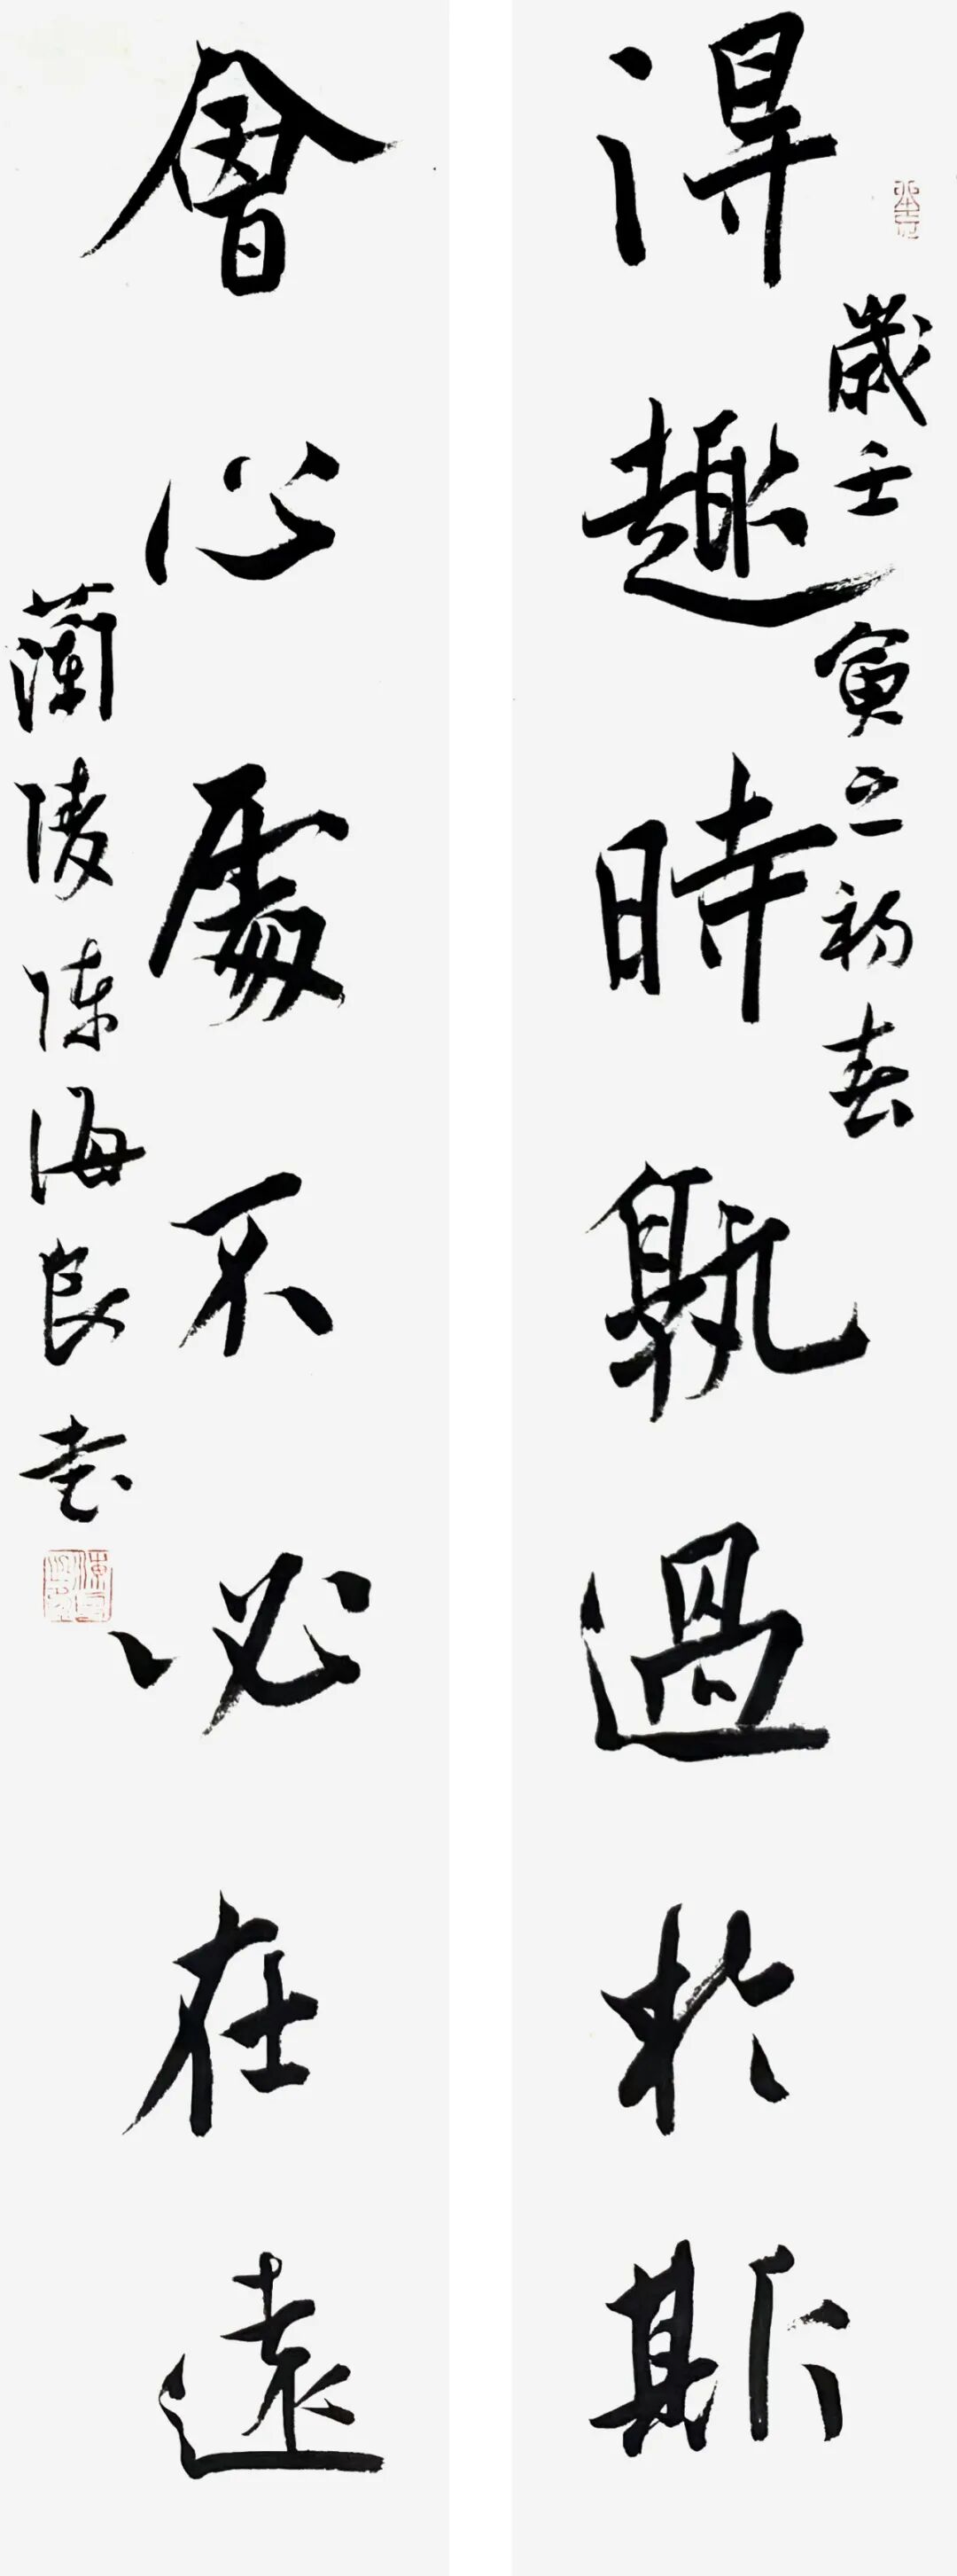 得趣時孰過於斯
歲壬寅之初春
會心處不必在遠
蘭陵陳海良書